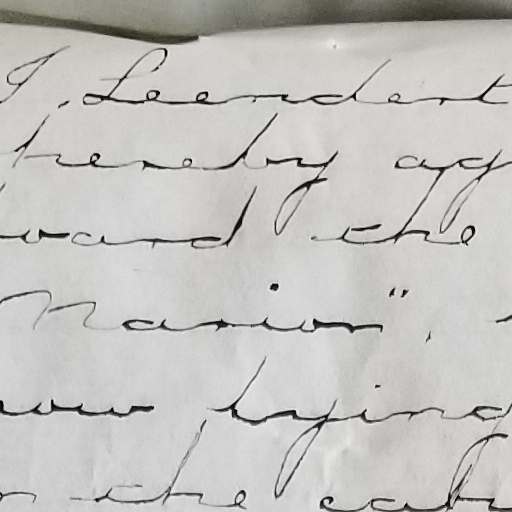 I, Leendert
hereby ag
board the
Marion",
now lying
the